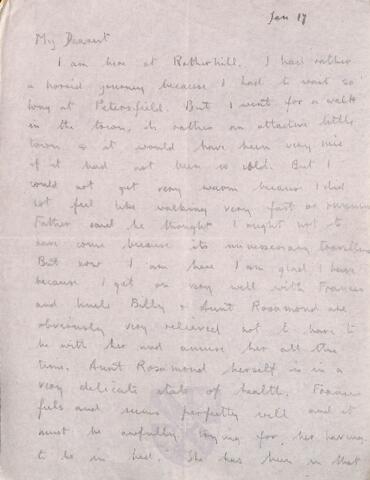 Jan 17
My Dearest
I am here at Rotherhill. I had rather
a horrid journey because I had to wait so
long at Petersfield. But I went for a walk
in the town, its rather an attractive little
town & it would have been very nice
if it had not been so cold. But I
could not get very warm because I did
not feel like walking very fast or running
Father said he thought I ought not to
have come because its unnecessary travelling
But now I am here I am glad I have
because I get on very well with Frances
and Uncle Billy & Aunt Rosamond are
obviously very relieved not to have to
be with her and amuse her all the
time. Aunt Rosamond herself is in a
very delicate state of health. Frances
feels and seems perfectly well and it
must be awfully trying for her having
to be in bed. She has been in that